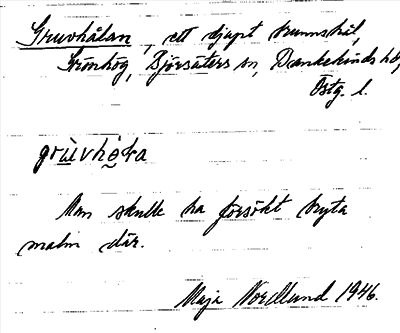 Gruvhålan, ett djupt brunnshål,
Grönhög, Björsäters sn, Bankekinds hd,
Östg. l.
Man skulle ha försökt bryta
malm där.
Maja Nordlund 1946.